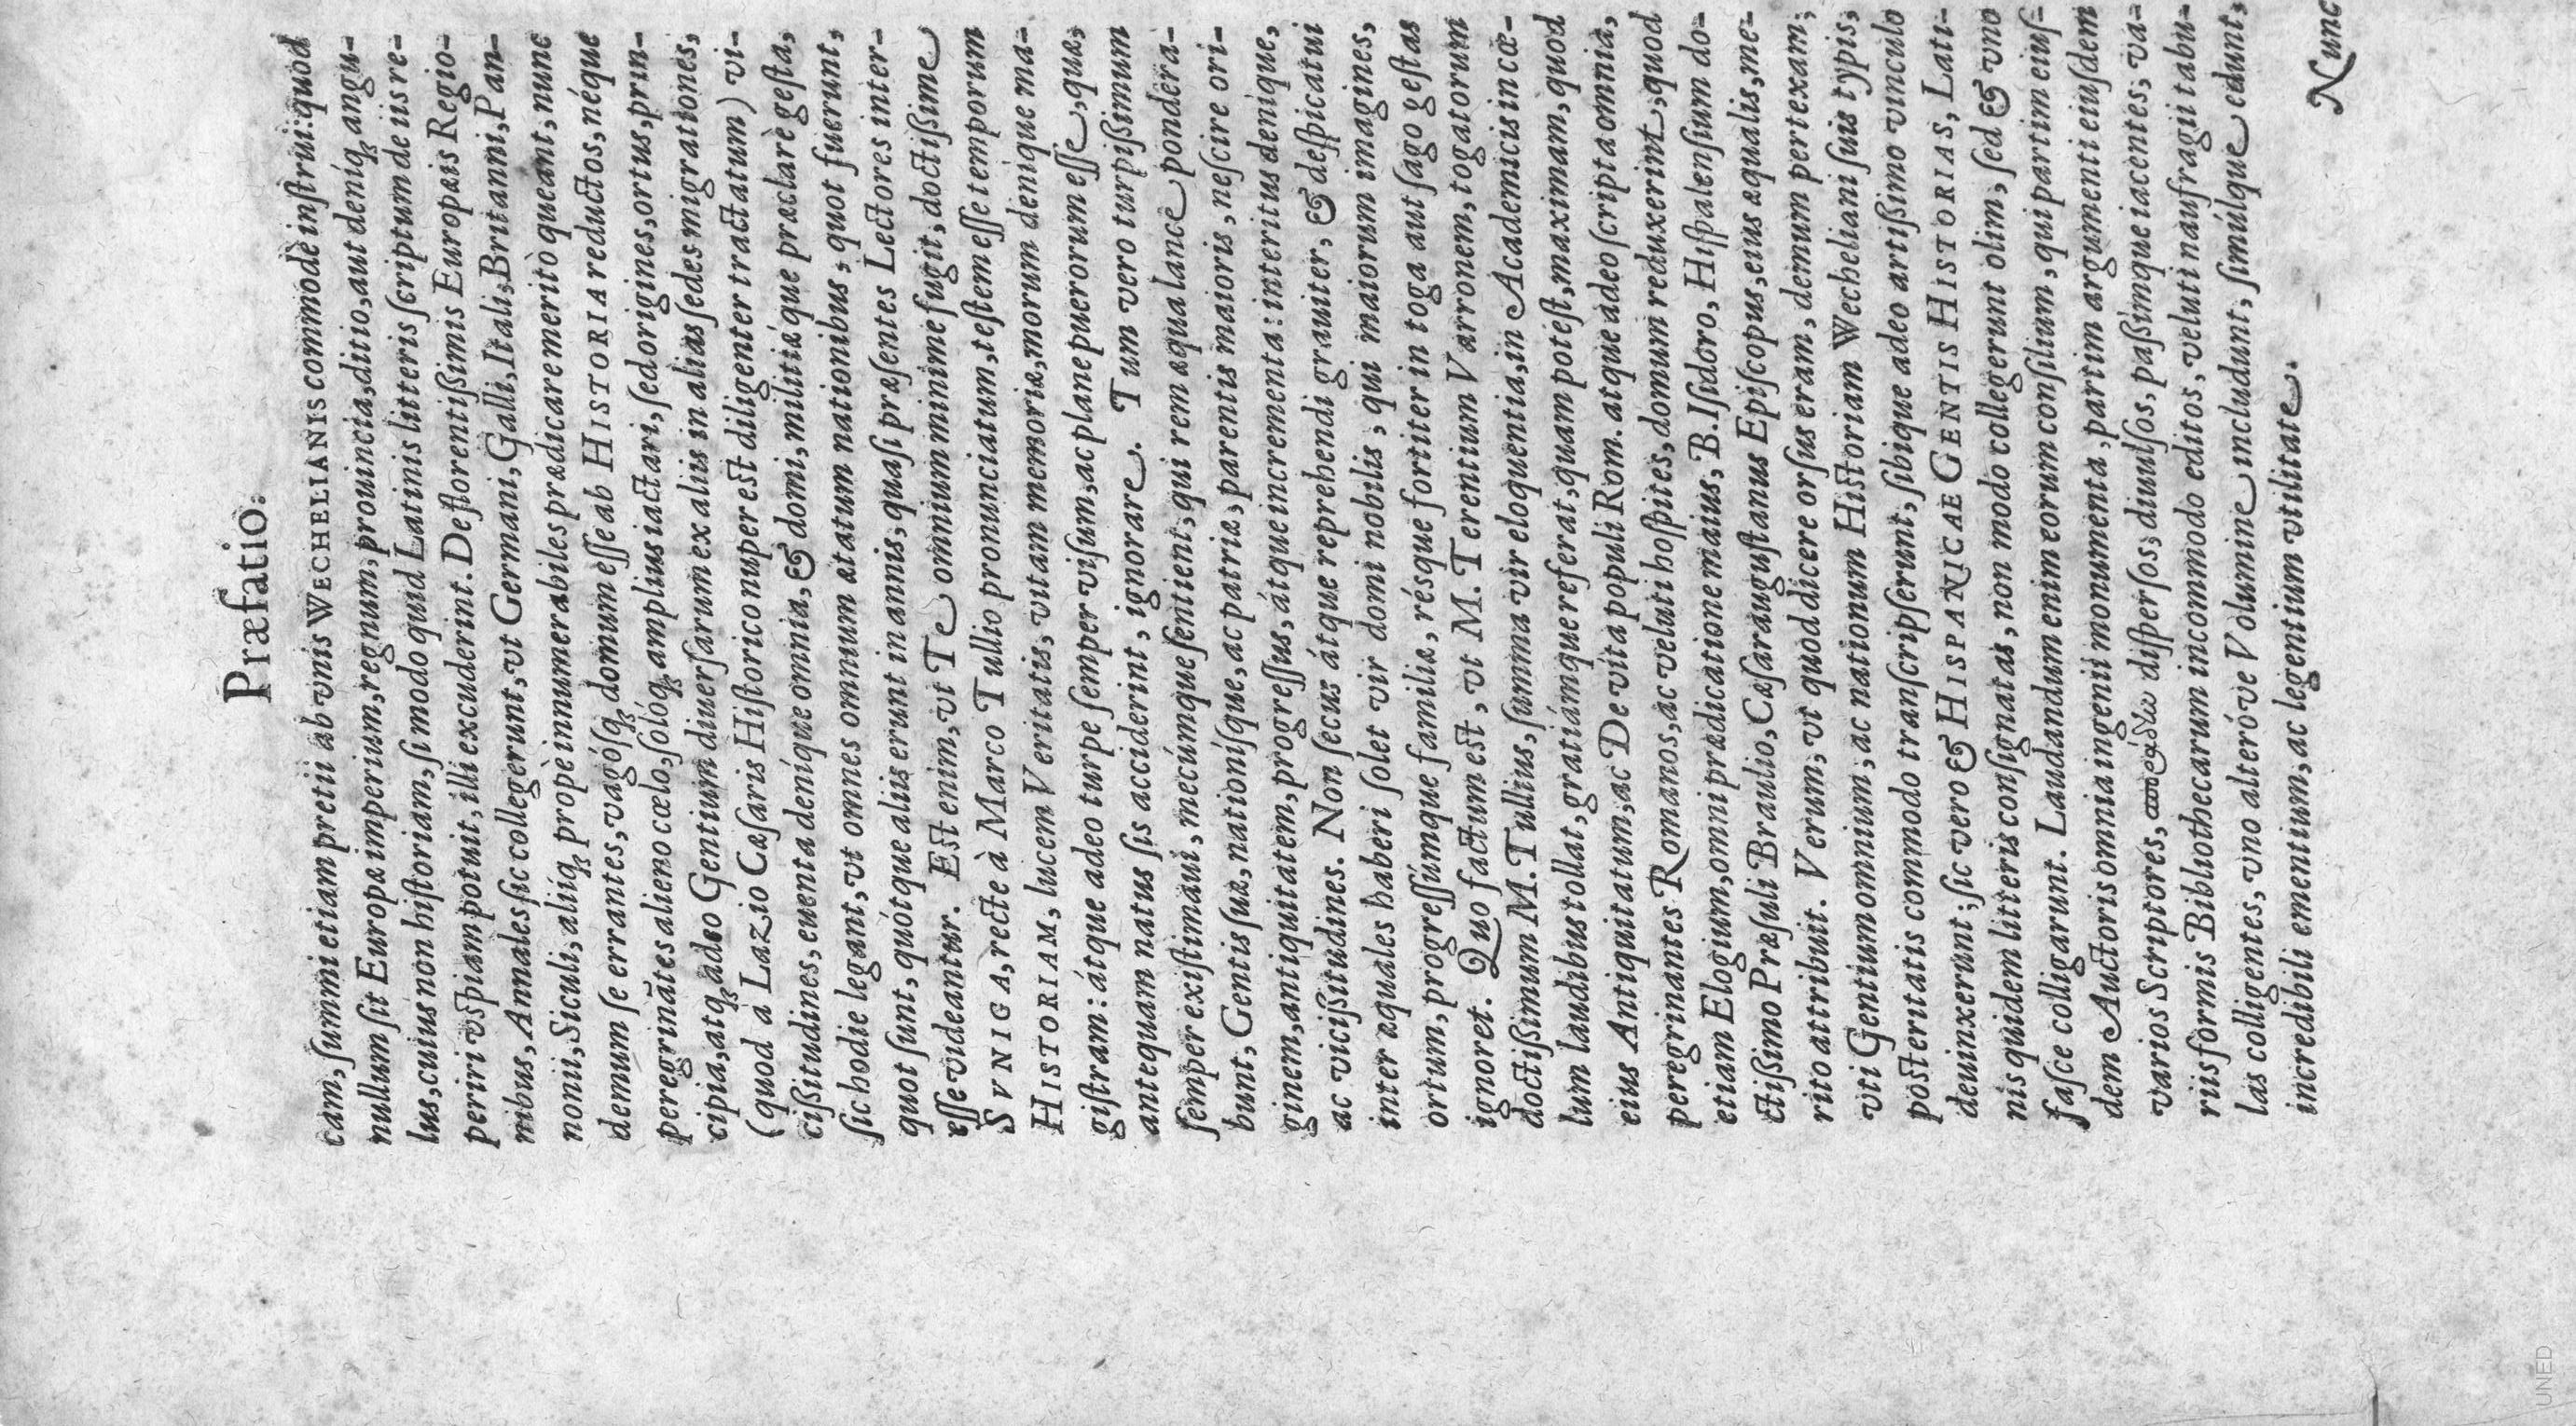 Præfatio.
cam, ſummi etiam pretii ab vnis WECHELIANIS commodè inſtrui: quod
nullum ſit Europæ imperium, regnum, prouincia, ditio, aut deníq; angu-
lus, cuius non hiſtoriam, ſi modo quid Latinis litteris ſcriptum de iis re-
periri vſpiam potuit, illi excuderint. De florentißimis Europæis Regio-
nibus, Annales ſic collegerunt, vt Germani, Galli, Itali, Britanni, Pan-
nonii, Siculi, aliíq; propè innumerabiles prædicare meritò queant, nunc
demum ſe errantes, vagóſq; domum eſſe ab HISTORIA reductos, néque
peregrinãtes alieno cœlo, ſolóq; amplius iactari, ſed origines, ortus, prin-
cipia, atq; adeo Gentium diuerſarum ex aliis in alias ſedes migrationes,
(quod à Lazio Cæſaris Hiſtorico nuper est diligenter tractatum) vi-
cißitudines, euenta deníque omnia, & domi, militiǽque præclarè geſta,
ſic hodie legant, vt omnes omnium ætatum nationibus, quot fuerunt,
quot ſunt, quótque aliis erunt in annis, quaſi præſentes Lectores inter-
eſſe videantur. Est enim, vt Te omnium minimè fugit, doctißime
SVNIGA, recte à Marco Tullio pronunciatum, teſtem eſſe temporum
HISTORIAM, lucem Veritatis, vitam memoriæ, morum denique ma-
giſtram: átque adeo turpe ſemper viſum, ac plane puerorum eſſe, quæ,
antequam natus ſis acciderint, ignorare. Tum vero turpißimum
ſemper exiſtimaui, mecúmque ſentient, qui rem æqua lance pondera-
bunt, Gentis ſuæ, nationíſque, ac patriæ, parentis maioris, neſcire ori-
ginem, antiquitatem, progreſſus, átque incrementa: interitus denique,
ac vicißitudines. Non ſecus átque reprehendi grauiter, & deſpicatui
inter æquales haberi ſolet vir domi nobilis, qui maiorum imagines,
ortum, progreſſúmque familiæ, réſque fortiter in toga aut ſago geſtas
ignoret. Quo factum est, vt M. Terentium Varronem, togatorum
doctißimum M. Tullius, ſumma vir eloquentia, in Academicis in cœ-
lum laudibus tollat, gratiámque referat, quam poteſt, maximam, quod
eius Antiquitatum, ac De vita populi Rom. atque adeo ſcripta omnia,
peregrinantes Romanos, ac veluti hoſpites, domum reduxerint, quod
etiam Elogium, omni prædicatione maius, B. Iſidoro, Hiſpalenſium do-
ctißimo Præſuli Braulio, Cæſarauguſtanus Epiſcopus, eius æqualis, me-
rito attribuit. Verum, vt quod dicere orſus eram, demum pertexam;
vti Gentium omnium, ac nationum Hiſtoriam Wecheliani ſuis typis,
posteritatis commodo tranſcripſerunt, ſibique adeo artißimo vinculo
deuinxerunt; ſic vero & HISPANICAE GENTIS HISTORIAS, Lati-
nis quidem litteris conſignatas, non modo collegerunt olim, ſed & vno
faſce colligarunt. Laudandum enim eorum conſilium, qui partim eiuſ-
dem Auctoris omnia ingenii monumenta, partim argumenti eiuſdem
varios Scriptores, diſperſos, diuulſos, paßimque iacentes, va-
riis formis Bibliothecarum incommodo editos, veluti naufragii tabu-
las colligentes, vno alteróve Volumine includunt, ſimúlque edunt,
incredibili ementium, ac legentium vtilitate.
Nunc
UNED